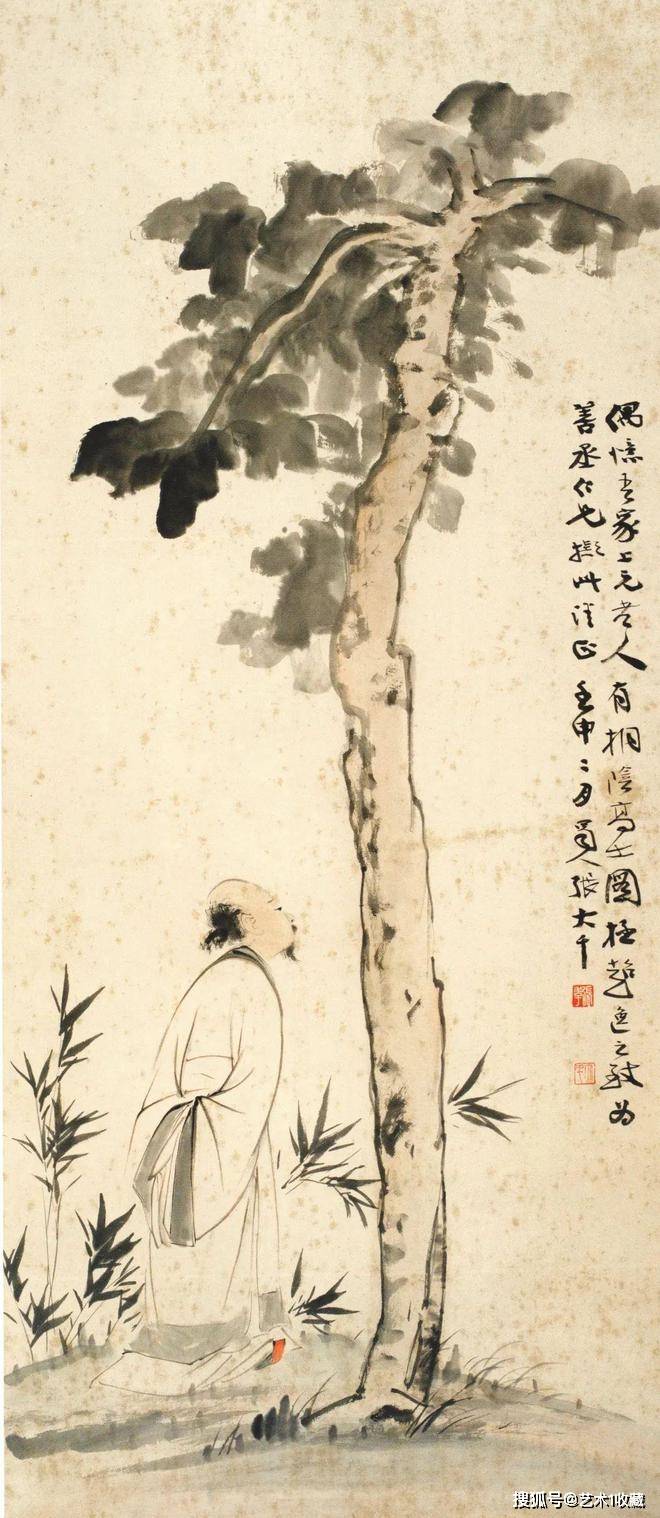 偶憶吾家上元老人有桐陰高士圖極超逸之致为
善丞仁兄擬此請正 壬申二月蜀人張大千
搜狐号@艺术1收藏